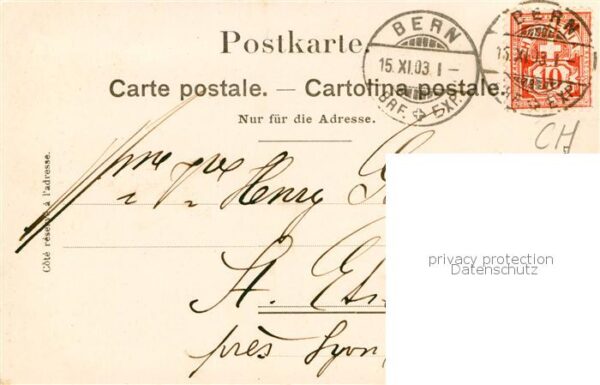 Postkarte.
Carte postale. — Cartolina postale.
Nur für die Adresse.
Côté réservé à l'adresse.
BERN
15.XI.03.1-
BRF. EXP.
BERN
15.XI.03.1-
EXP.
10
CH
Mme Vve Henry
St. Eti
près Lyon
privacy protection
Datenschutz